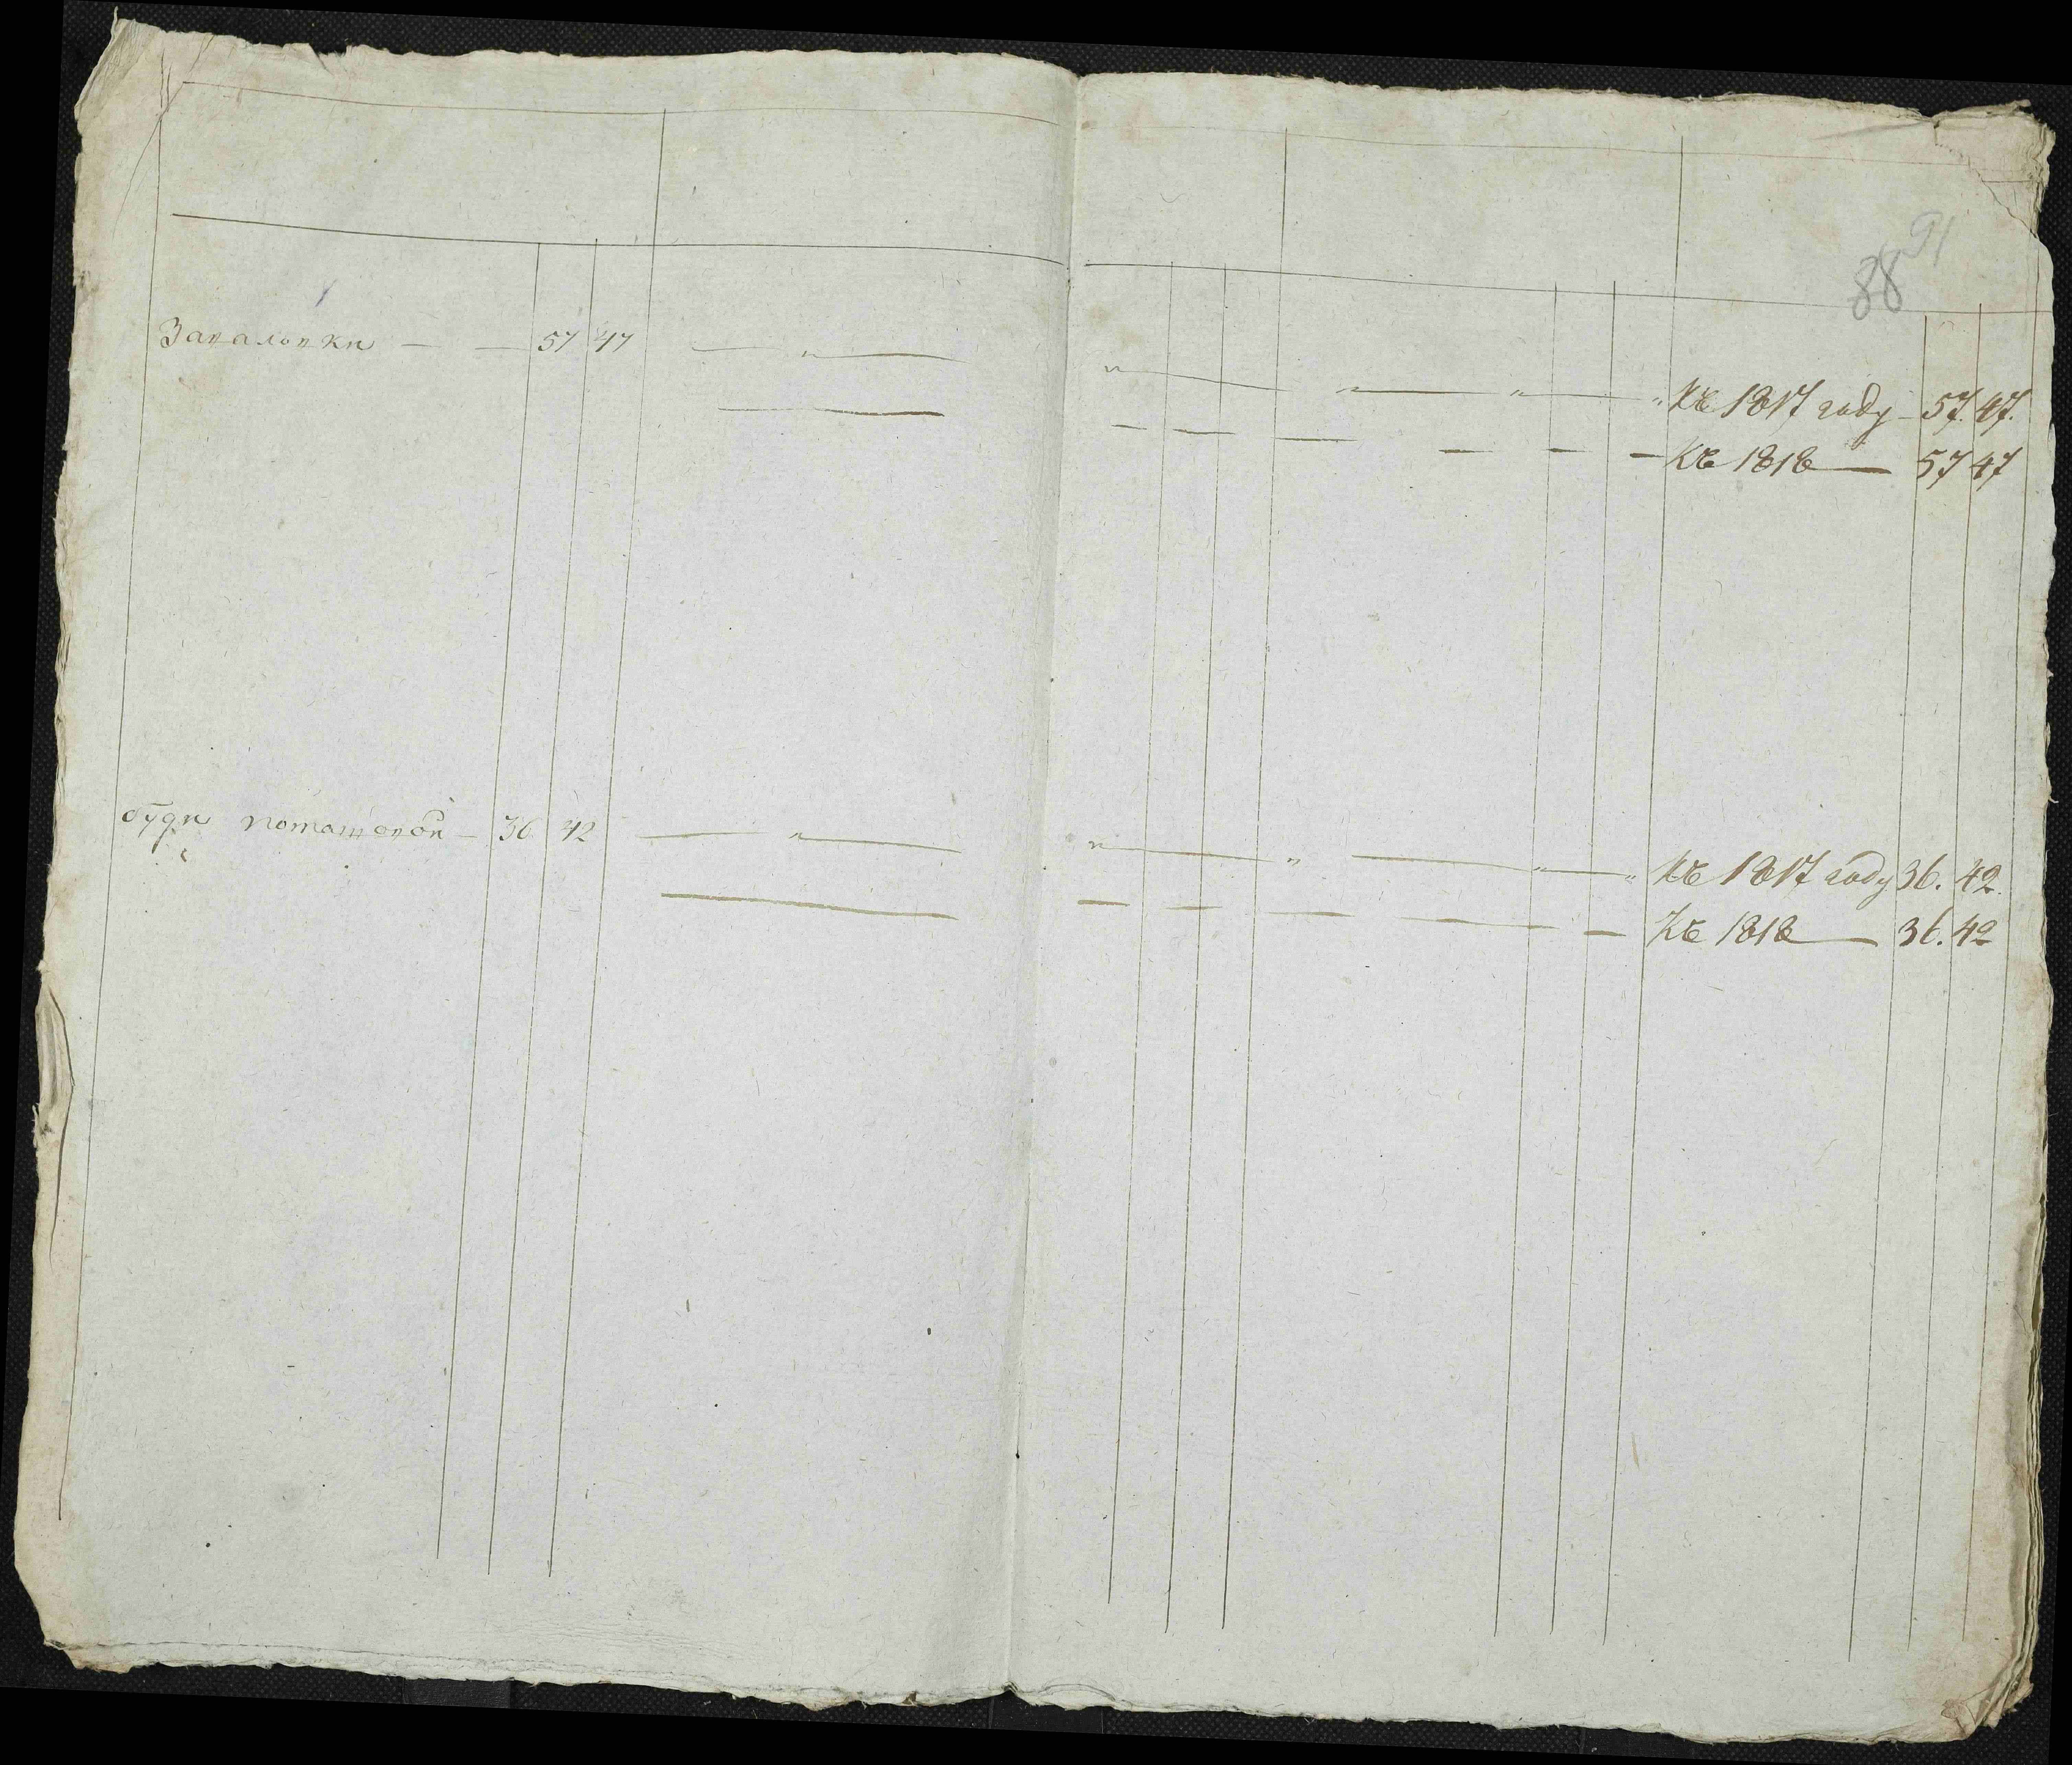 88 91
Завалонки — — 57 47 — „ — „ — „ — „ — „ Къ 1817 году — 57. 47.
— — — — — — — Къ 1818 — 57 47
буди поташовой — 36 42 — „ — „ — „ — „ — „ Къ 1817 году 36. 42.
— — — — — — Къ 1818 — 36. 42